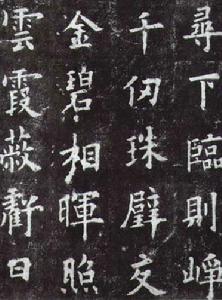 尋下臨則崢
千仞珠璧交
金碧相暉照
雲霞蔽虧日